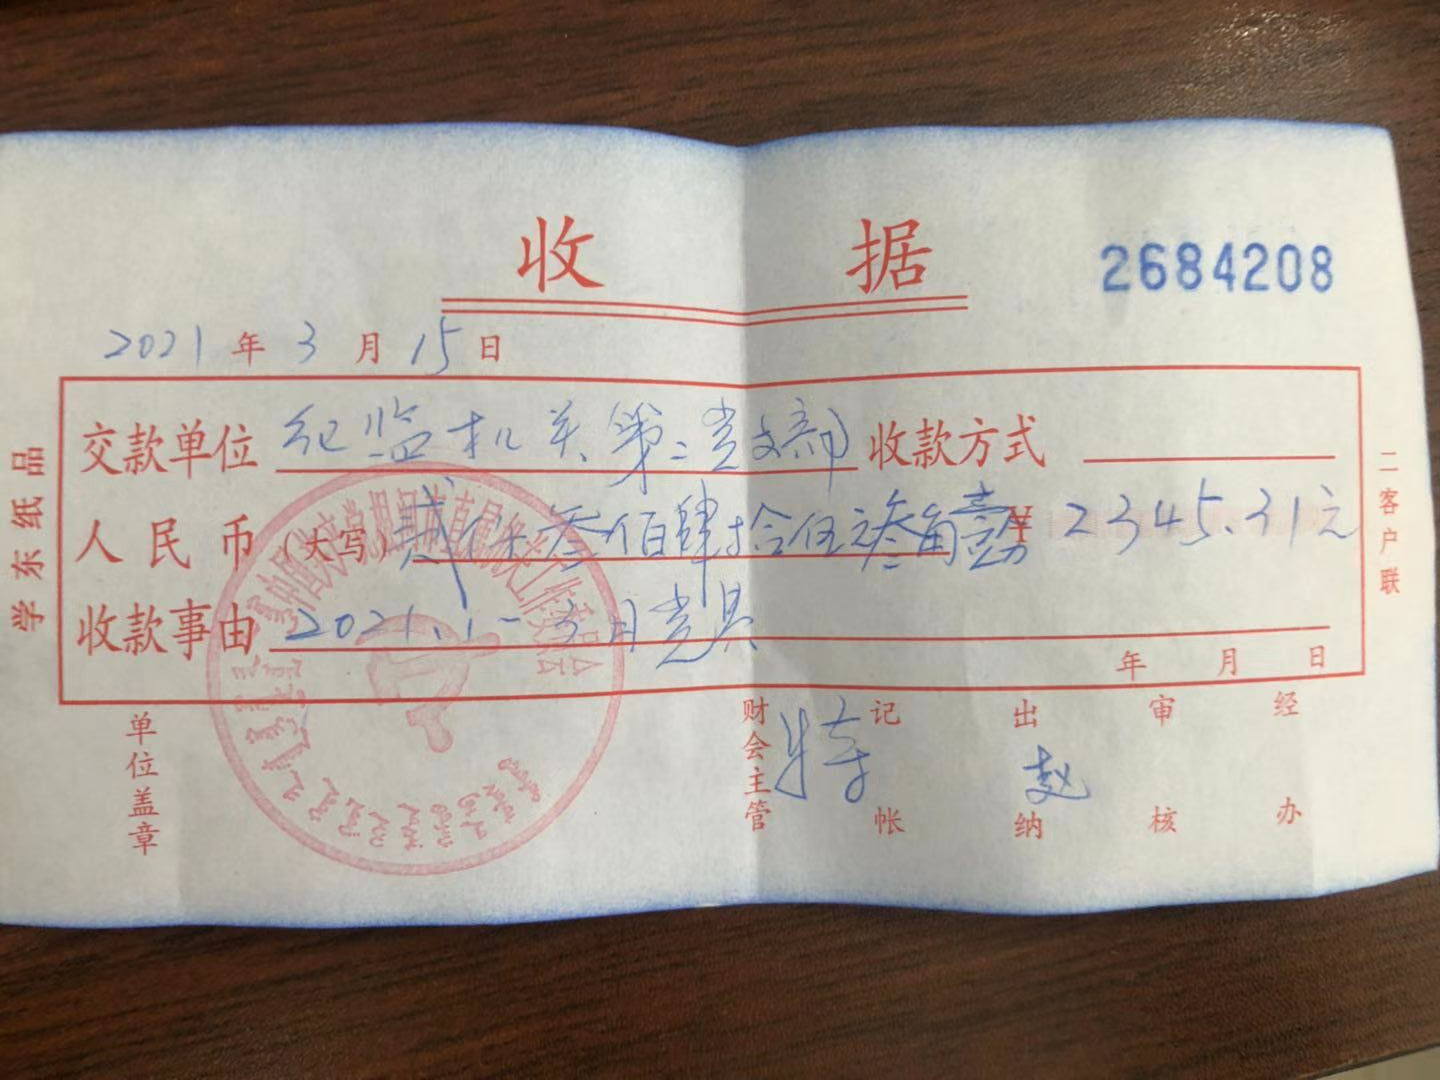 收 据
2684208
2021 年 3 月 15 日
交款单位 纪监机关第二党支部 收款方式
人民币(大写) 贰仟叁佰肆拾伍元叁角壹分 ¥ 2345.31元
收款事由 2021.1-3月党费
年 月 日
单位盖章
财会主管 记帐 出纳 赵 审核 经办
学东纸品
二客户联